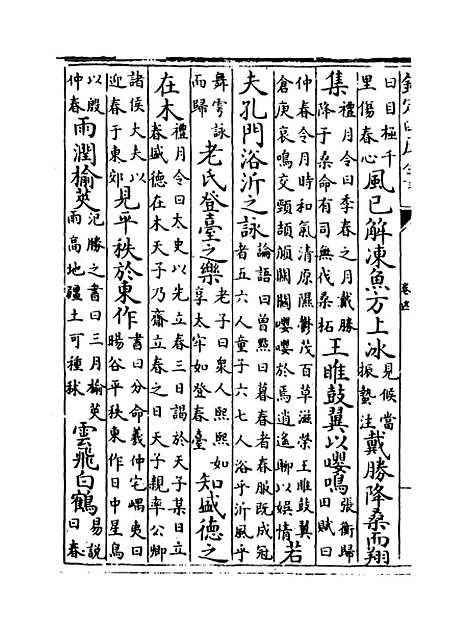 曰目極千里傷春心風已解凍魚方上冰見候當振蟄注戴勝降桑而翔
集禮月令曰季春之月戴勝降于桑命有司無伐桑柘王雎鼓翼以嚶鳴張衡歸田賦曰
仲春令月時和氣清原隰鬱茂百草滋榮王雎鼓翼倉庚哀鳴交頸頡頏關關嚶嚶於焉逍遙聊以娛情若
夫孔門浴沂之詠論語曰曾點曰暮春者春服既成冠者五六人童子六七人浴乎沂風乎
舞雩詠而歸老氏登臺之樂老子曰衆人熙熙如享太牢如登春臺知盛德之
在木禮月令曰太史以先立春三日謁於天子某日立春盛德在木天子乃齋立春之日天子親率公卿
諸侯大夫以迎春于東郊見平秩於東作書曰分命羲仲宅嵎夷曰暘谷平秩東作日中星鳥
以殷仲春雨潤榆莢氾勝之書曰三月榆莢雨高地疆土可種秫雲飛白鶴易說曰春